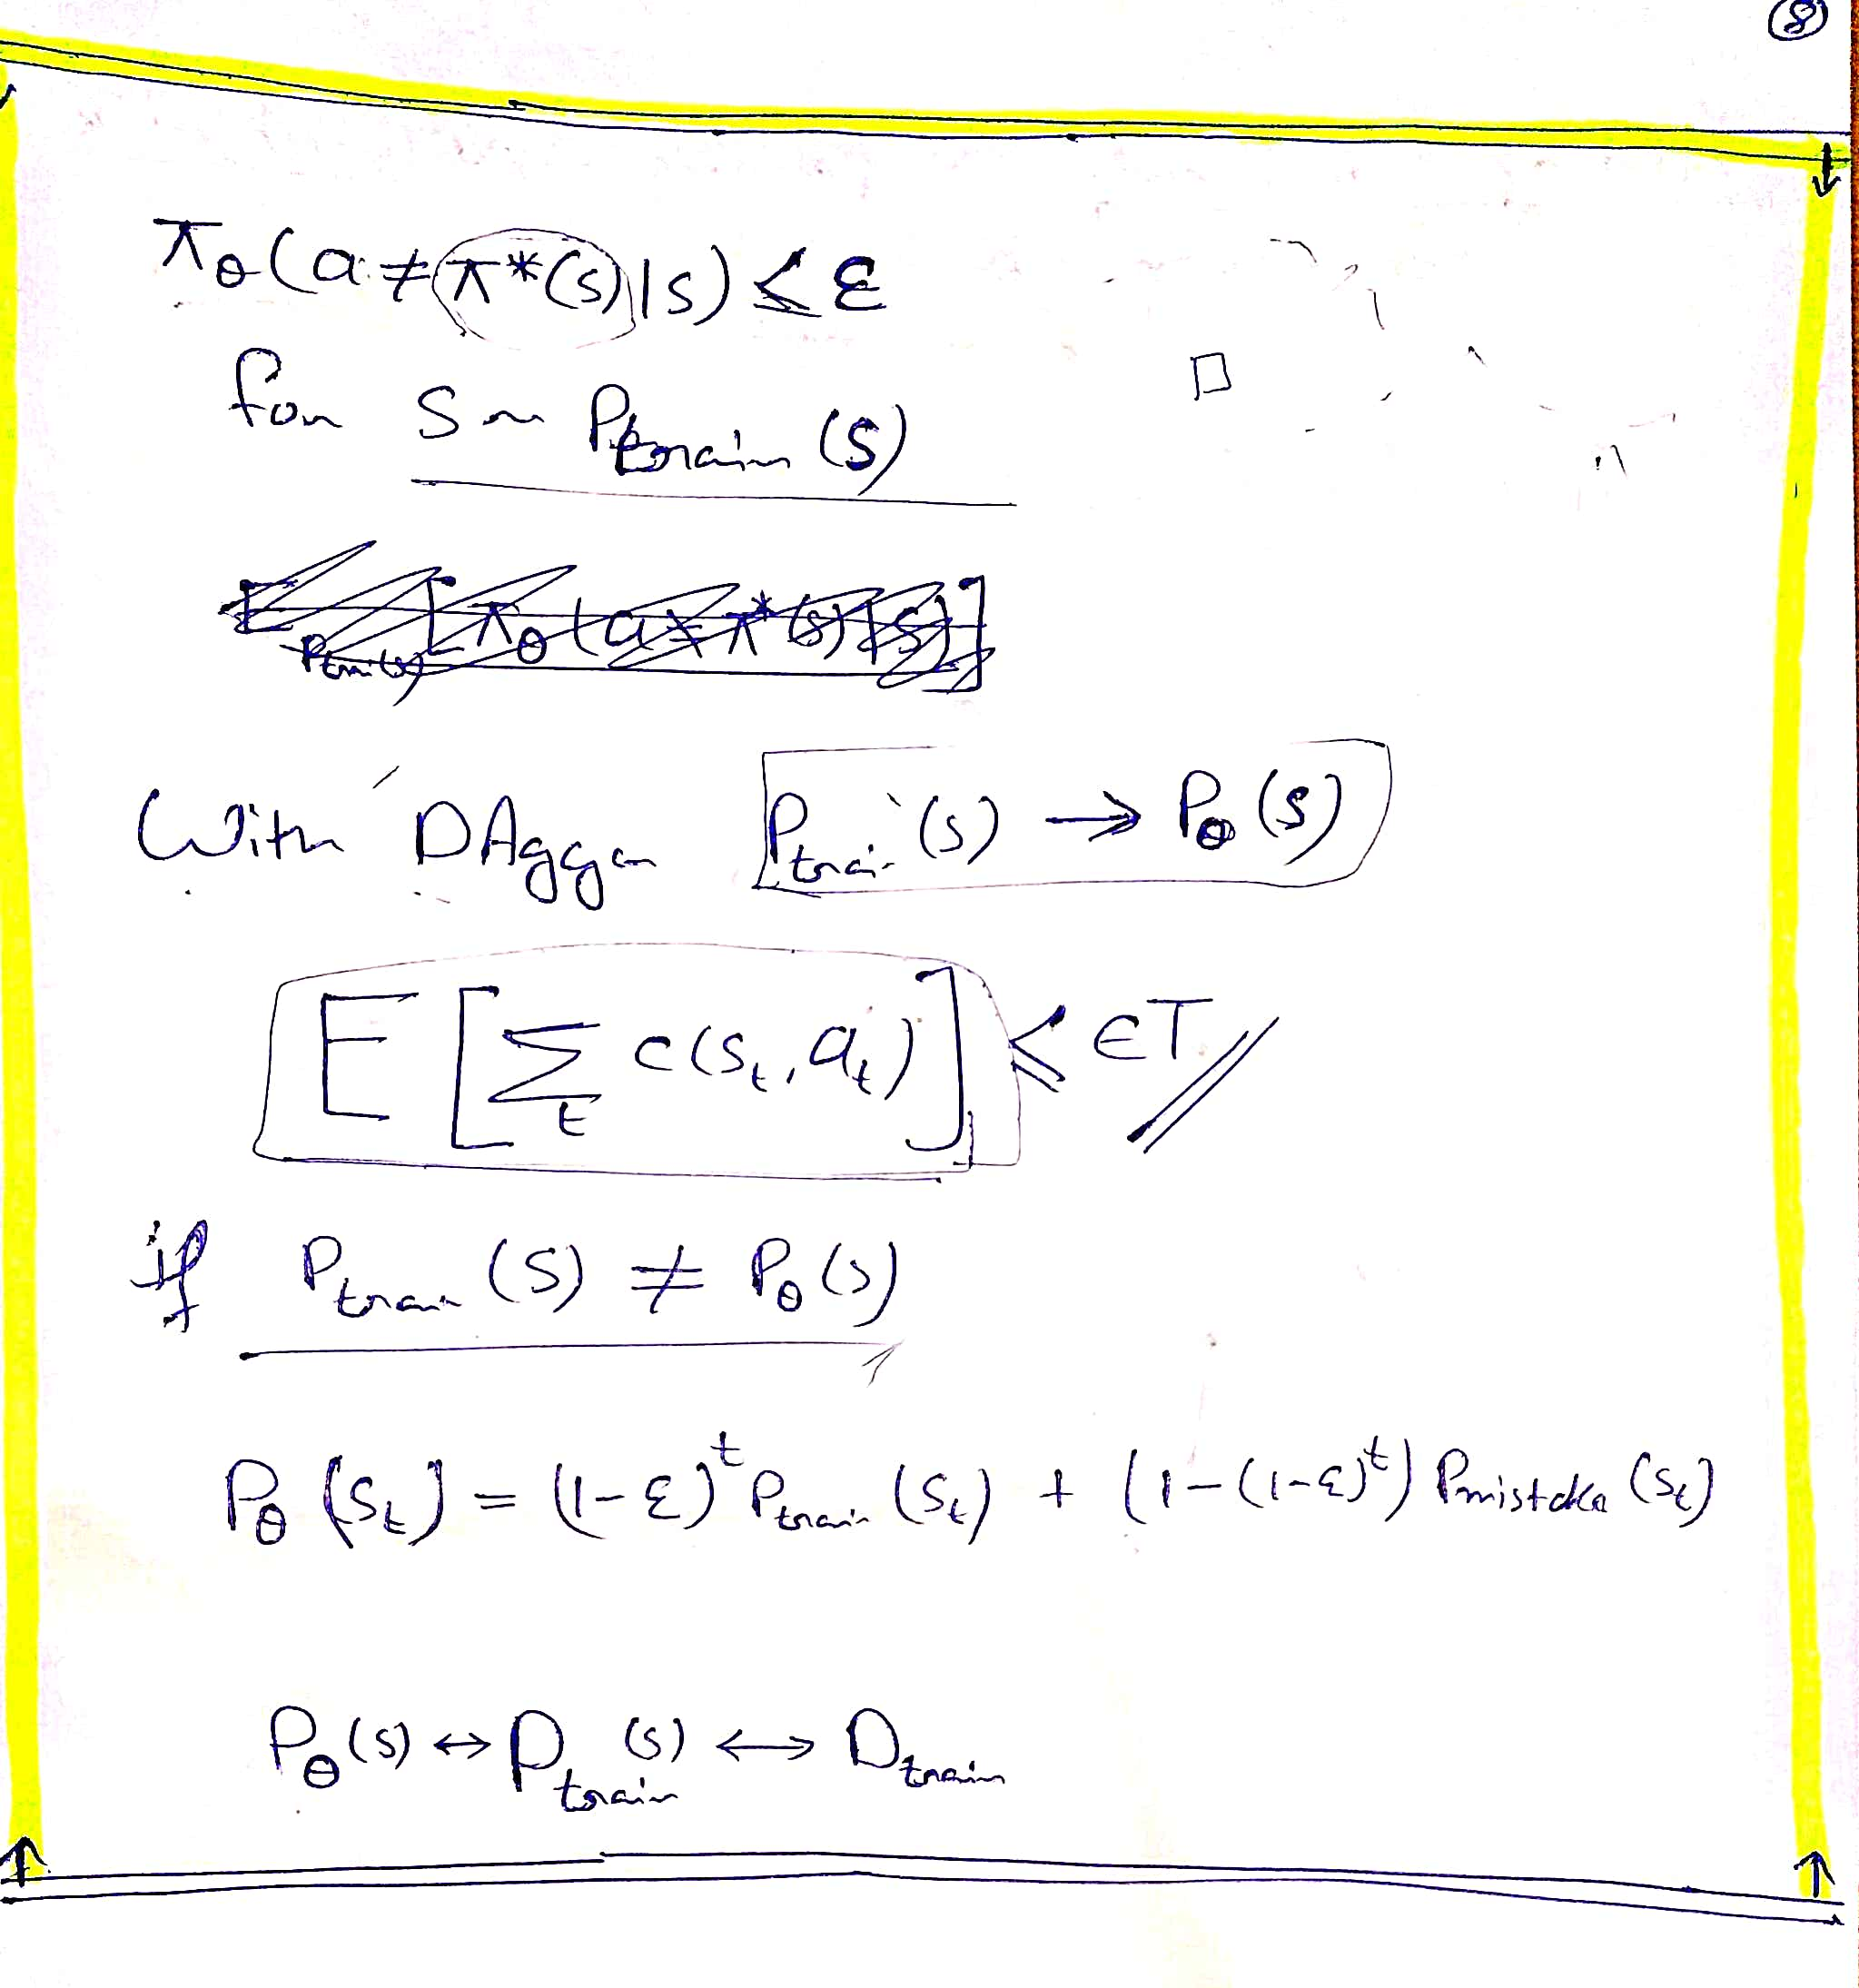 8
π_θ(a ≠ π*(s)|s) ≤ ε
for s ~ P_train(s)
E_P_train(s) [π_θ(a ≠ π*(s)|s)]
With DAgger P_train(s) → P_θ(s)
E[Σ_t c(s_t, a_t)] ≤ ∈T
if P_train(s) ≠ P_θ(s)
P_θ(s_t) = (1-ε)^t P_train(s_t) + (1-(1-ε)^t) P_mistake(s_t)
P_θ(s) ↔ P_train(s) ↔ D_train